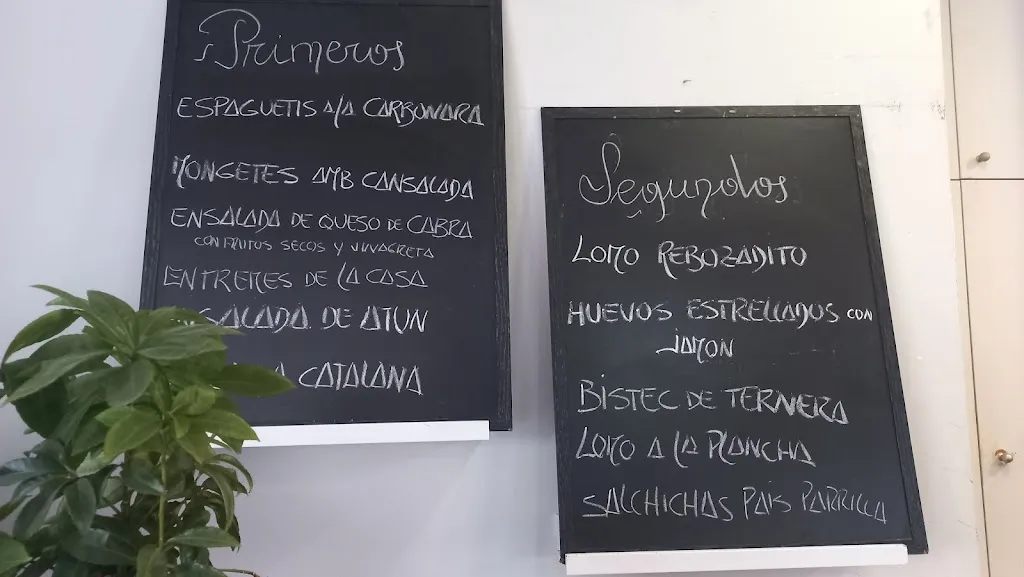 Primeros
ESPAGUETIS A/A CARBONARA
MONGETES AMB CANSALADA
ENSALADA DE QUESO DE CABRA
CON FRUTOS SECOS Y VINAGRETA
ENTREMES DE LA CASA
DE ATUN
CATALANA
Segundos
LOMO REBOZADITO
HUEVOS ESTRELLADOS CON
JAMON
BISTEC DE TERNERA
LOMO A LA PLANCHA
SALCHICHAS PAIS PARRILLA